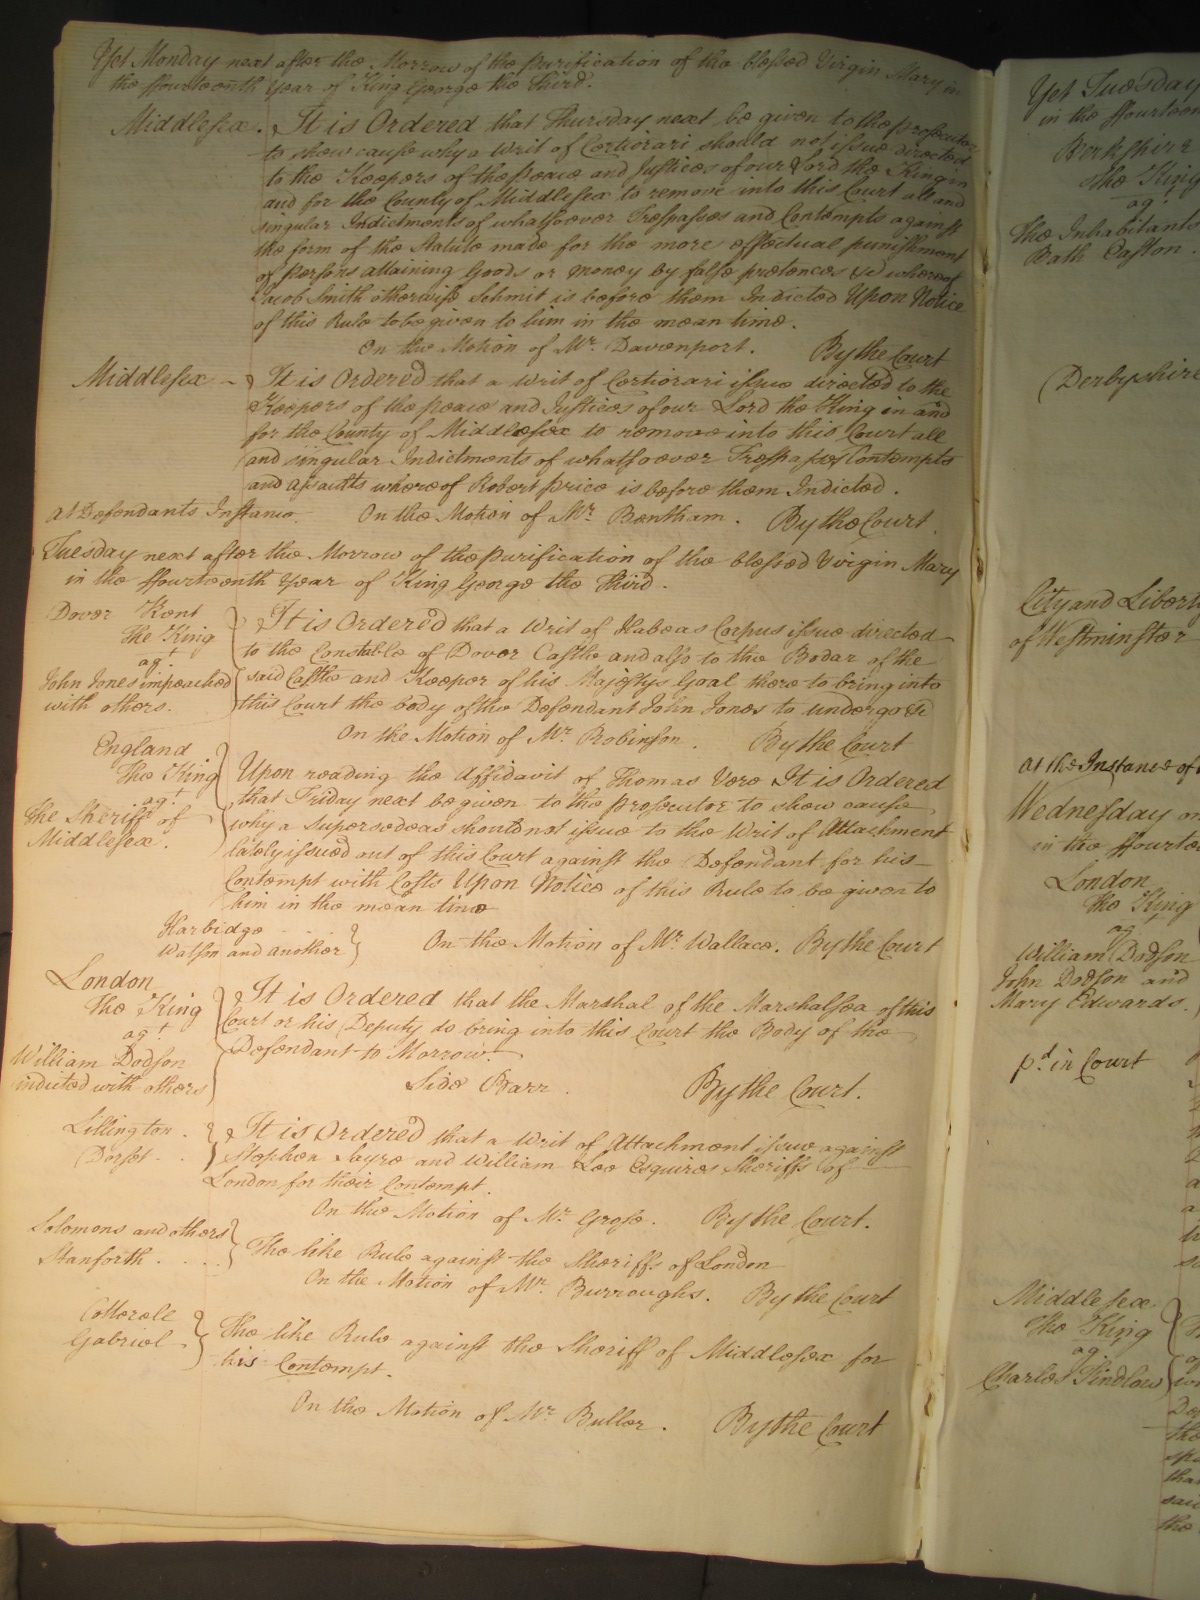 Yet Monday next after the Morrow of the Purification of the blessed Virgin Mary in
the ffourteenth Year of King George the Third.
Middlesex. It is Ordered that Thursday next be given to the prosecutor
to shew cause why a Writ of Certiorari should not issue directed
to the Keepers of the peace and Justices of our Lord the King in
and for the County of Middlesex to remove into this Court all and
singular Indictments of whatsoever Trespasses and Contempts against
the form of the Statute made for the more effectual punishment
of persons attaining Goods or money by false pretences &c whereof
Jacob Smith otherwise Schmit is before them Indicted Upon Notice
of this Rule to be given to him in the mean time.
On the Motion of Mr. Davenport. By the Court
Middlesex It is Ordered that a Writ of Certiorari issue directed to the
Keepers of the peace and Justices of our Lord the King in and
for the County of Middlesex to remove into this Court all
and singular Indictments of whatsoever Trespasses Contempts
and assaults whereof Robert price is before them Indicted.
At Defendants Instance. On the Motion of Mr. Bentham. By the Court
Tuesday next after the Morrow of the purification of the blessed Virgin Mary
in the ffourteenth Year of King George the Third.
Dover Kent
The King
agt
John Jones impeached
with others.
It is Ordered that a Writ of Habeas Corpus issue directed
to the Constable of Dover Castle and also to the Bodar of the
said Castle and Keeper of his Majestys Goal there to bring into
this Court the body of the Defendant John Jones to undergo &c
On the Motion of Mr. Robinson. By the Court
England
The King
agt
the Sheriff of
Middlesex.
Upon reading the Affidavit of Thomas Vere It is Ordered
that Friday next be given to the prosecutor to shew cause
why a Supersedeas should not issue to the Writ of Attachment
lately issued out of this Court against the Defendant for his
Contempt with Costs Upon Notice of this Rule to be given to
him in the mean time
Harbidge
Watson and another
On the Motion of Mr. Wallace. By the Court
London
The King
agt
William Dodson
indicted with others
It is Ordered that the Marshal of the Marshalsea of this
Court or his Deputy do bring into this Court the Body of the
Defendant to Morrow.
Side Barr. By the Court.
Lillington.
Dorset
It is Ordered that a Writ of Attachment issue against
Stephen Sayre and William Lee Esquires Sheriffs of
London for their Contempt.
On the Motion of Mr. Grose. By the Court.
Solomons and others
Stanforth
The like Rule against the Sheriffs of London
On the Motion of Mr. Burroughs. By the Court
Cotterele
Gabriel
The like Rule against the Sheriff of Middlesex for
his Contempt.
On the Motion of Mr. Buller. By the Court
Yet Tuesday
in the ffourteen
Berkshire
The King
agt
The Inhabitants
Bath Easton.
Derbyshire
City and Libert
of Westminster
At the Instance of
Wednesday
in the ffourte
London
The King
agt
William Dodson
John Dodson and
Mary Edwards.
pd in Court
Middlesex
The King
agt
Charles Kindlow